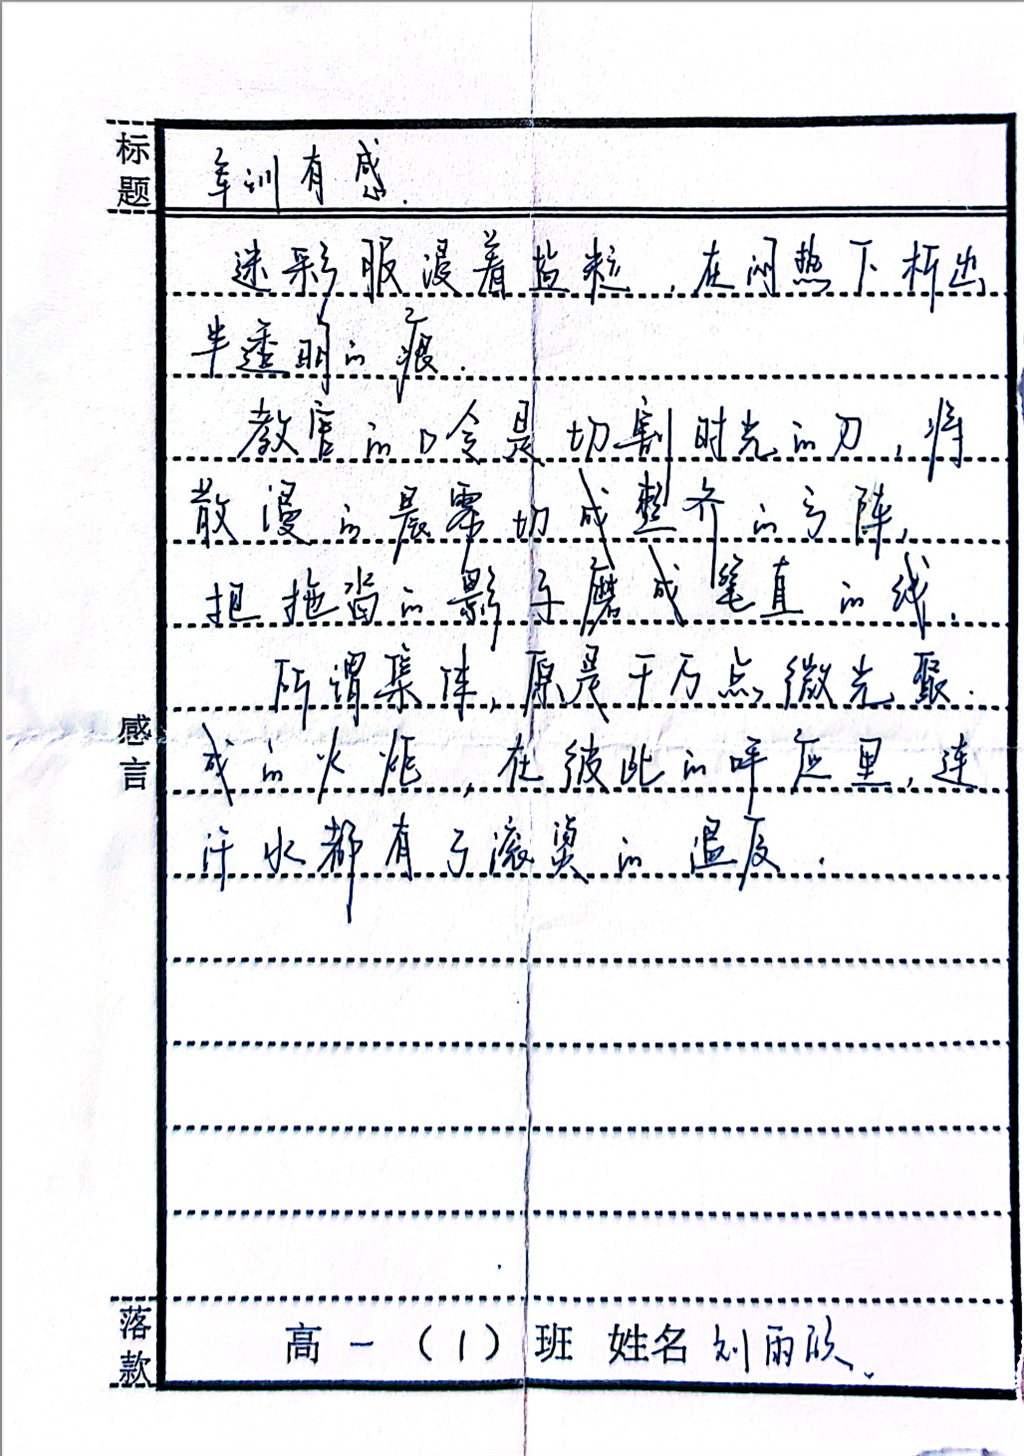 标题
军训有感.
迷彩服浸着盐粒，在闷热下析出
半透明的痕.
教官的口令是切割时光的刀，将
散漫的晨雾切成整齐的方阵，
把拖沓的影子磨成笔直的线.
所谓集体，原是千万点微光聚
成的火炬，在彼此的呼应里，连
汗水都有了滚烫的温度.
感言
落款
高一（1）班 姓名 刘雨欣.